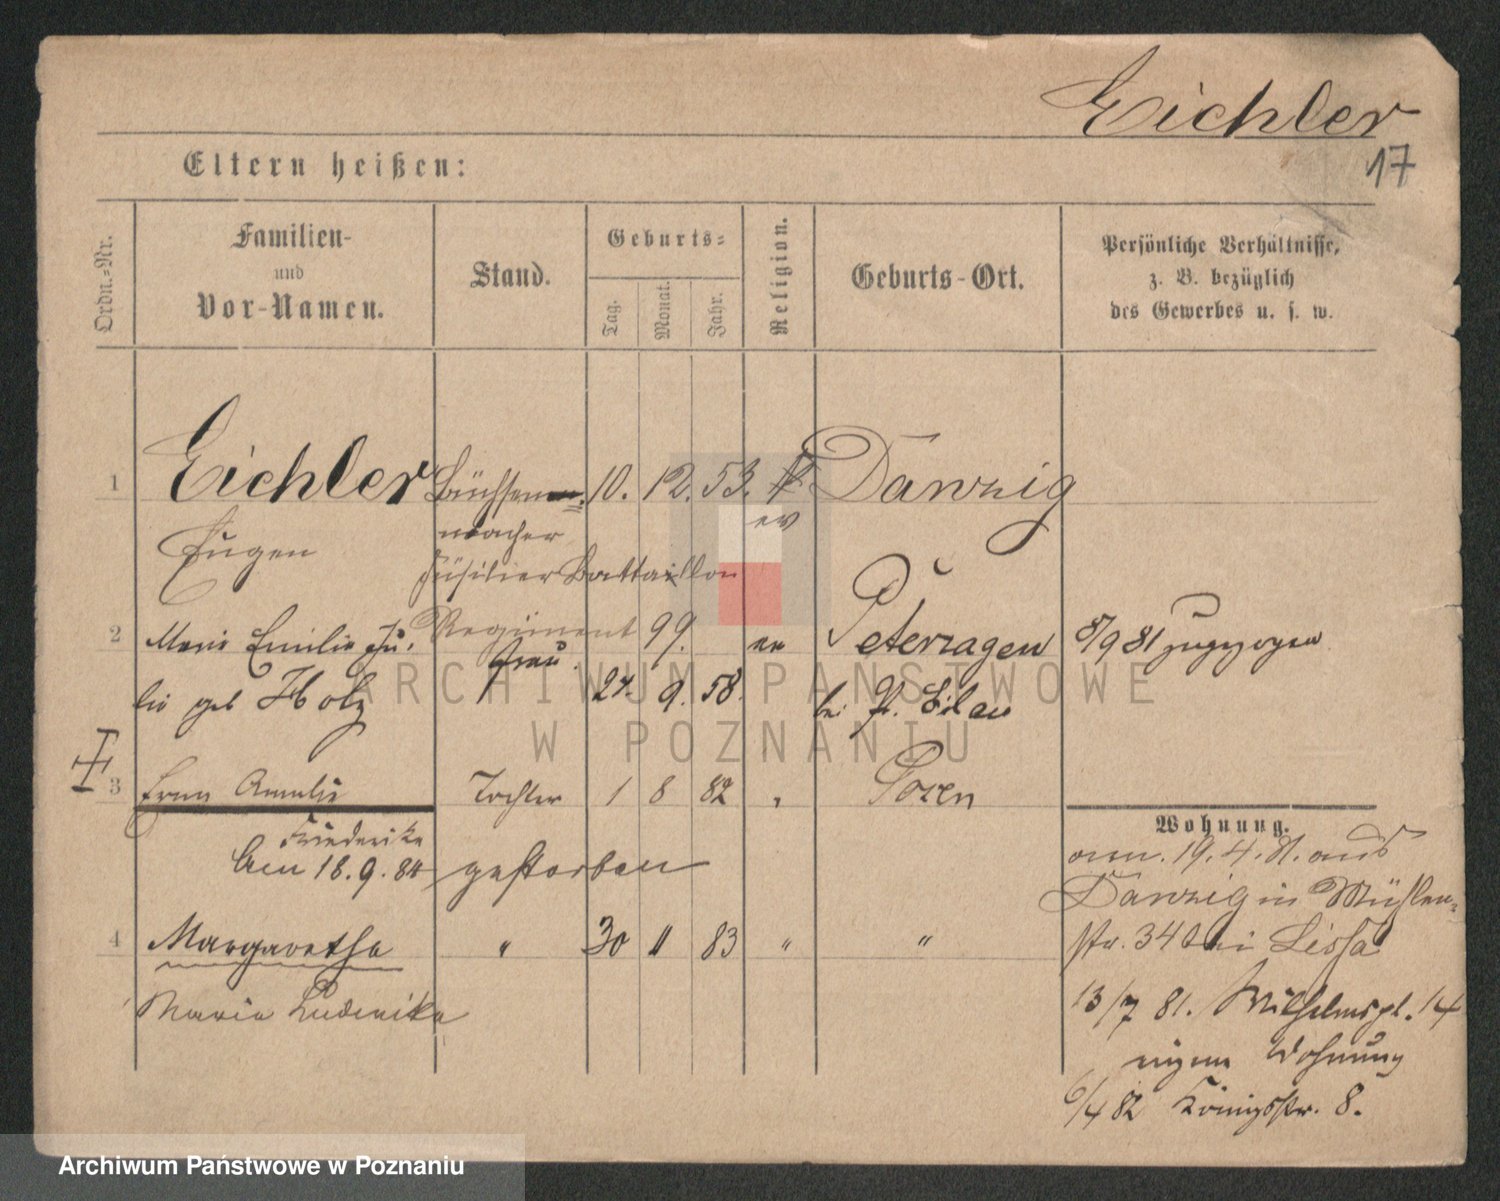 Eichler
17
Eltern heißen:
Ordn.-Nr.
Familien-
und
Vor-Namen.
Stand.
Geburts-
Tag.
Monat.
Jahr.
Religion.
Geburts-Ort.
Persönliche Verhältnisse,
z. B. bezüglich
des Gewerbes u. s. w.
1 Eichler Büchsen 10. 12. 53. Danzig
Eugen macher ev
Füsilier Bataillon
2 Marie Emilie Ju- Regiment 99. ev Peterzagen 8/9 81 zugezogen
lie geb Holz Frau 27. 9. 58. bei Pr. Eilau
3 Erna Amalie Tochter 1 8 82 " Posen
Friederike
Am 18.9.84 gestorben
Wohnung.
anm. 19.4.81. aus
Danzig in Mühlen-
str. 34 bei Lissa
4 Margarethe " 30 11 83 " "
Maria Ludowika
13/7 81. Wilhelmspl. 14
eigene Wohnung
6/4 82 Königsstr. 8.
ARCHIWUM PAŃSTWOWE
W POZNANIU
Archiwum Państwowe w Poznaniu